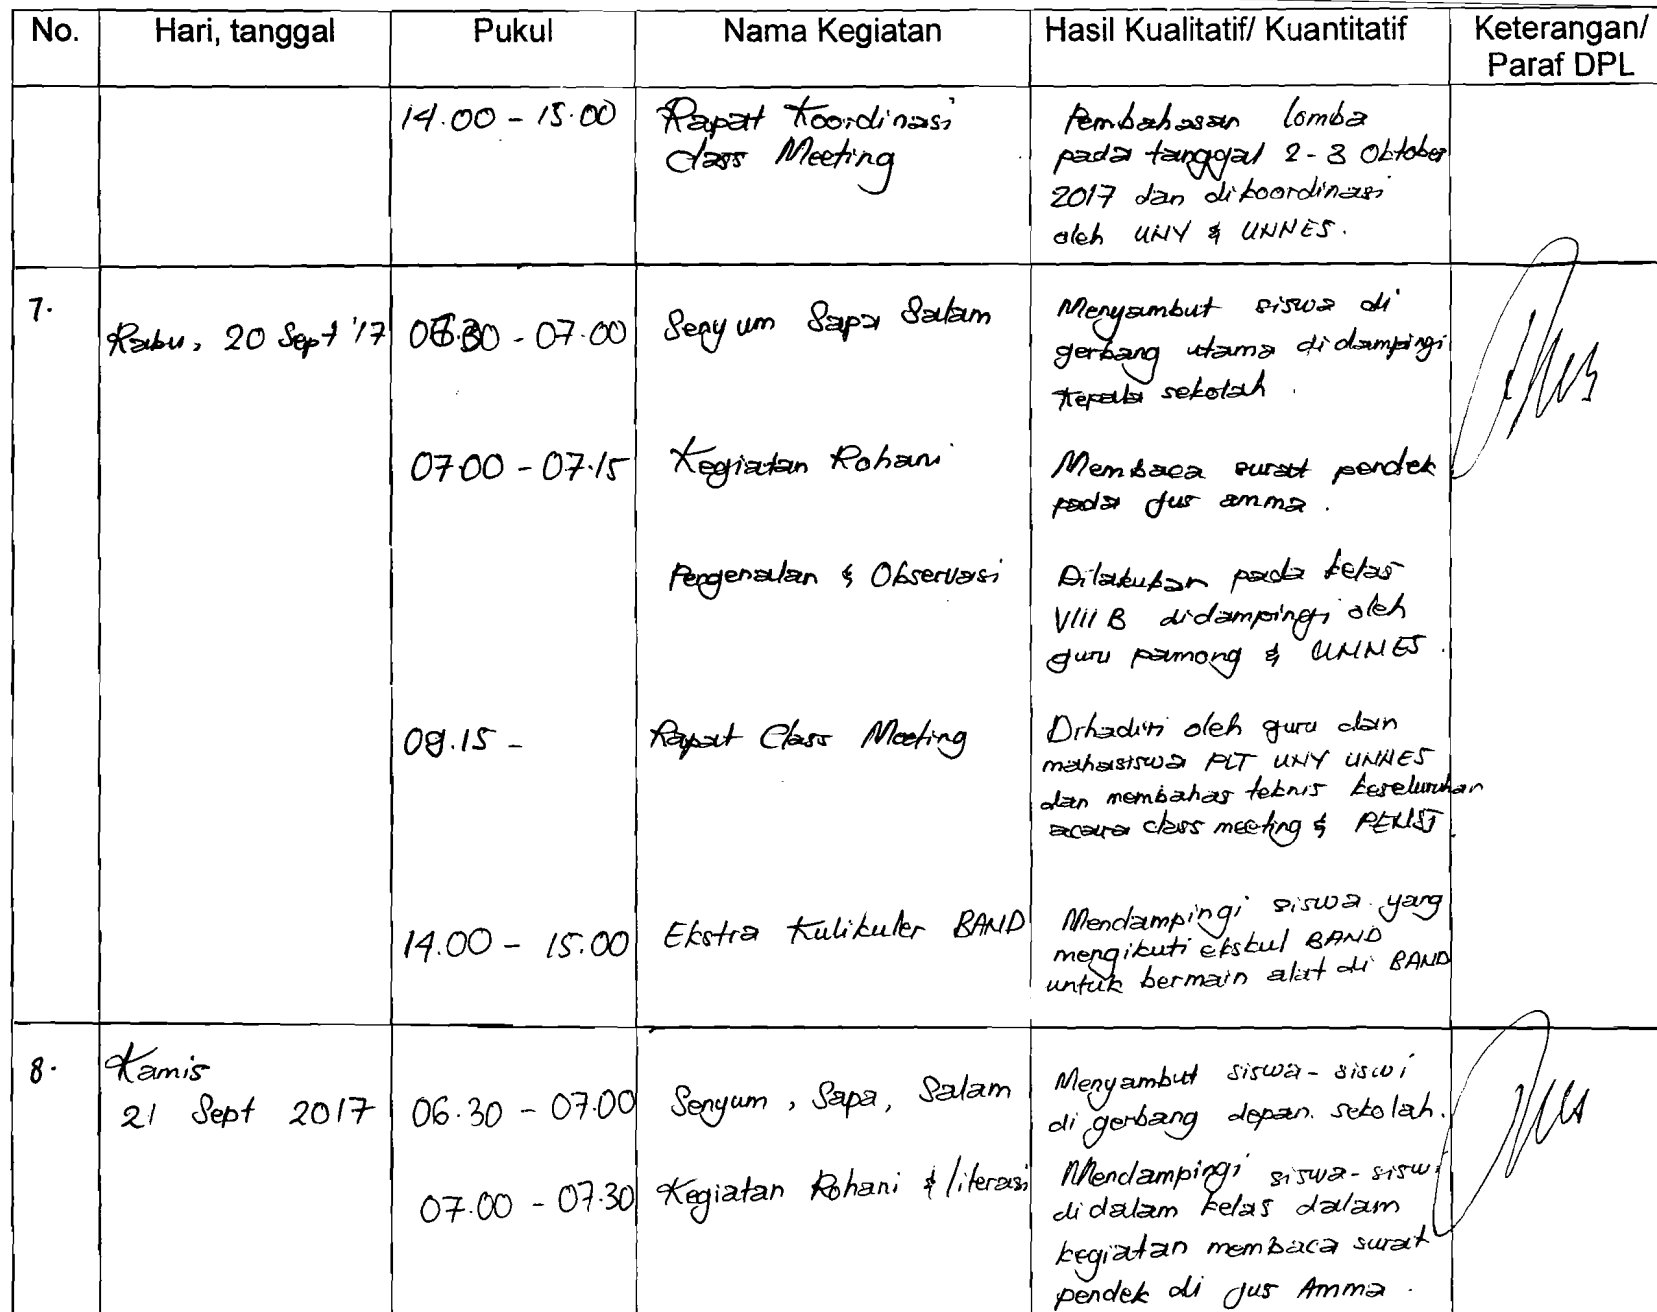 No. Hari, tanggal Pukul Nama Kegiatan Hasil Kualitatif/ Kuantitatif Keterangan/
Paraf DPL
14.00 - 15.00 Rapat Koordinasi
Class Meeting
Pembahasan lomba
pada tanggal 2 - 3 Oktober
2017 dan dikoordinasi
oleh UNY & UNNES.
7.
Rabu, 20 Sept '17 06.30 - 07.00 Senyum Sapa Salam
Menyambut siswa di
gerbang utama didampingi
Kepala sekolah.
07.00 - 07.15 Kegiatan Rohani
Membaca surat pendek
pada jus amma.
Pengenalan & Observasi
Dilakukan pada kelas
VIII B didampingi oleh
guru pamong & UNNES.
09.15 - Rapat Class Meeting
Dihadiri oleh guru dan
mahasiswa PLT UNY UNNES
dan membahas teknis keseluruhan
acara class meeting &
14.00 - 15.00 Ekstra Kulikuler BAND
Mendampingi siswa yang
mengikuti ekskul BAND
untuk bermain alat di BAND
8. Kamis
21 Sept 2017 06.30 - 07.00 Senyum, Sapa, Salam
Menyambut siswa - siswi
di gerbang depan. sekolah.
07.00 - 07.30 Kegiatan Rohani & literasi
Mendampingi siswa-siswi
didalam kelas dalam
kegiatan membaca surat
pendek di jus Amma.